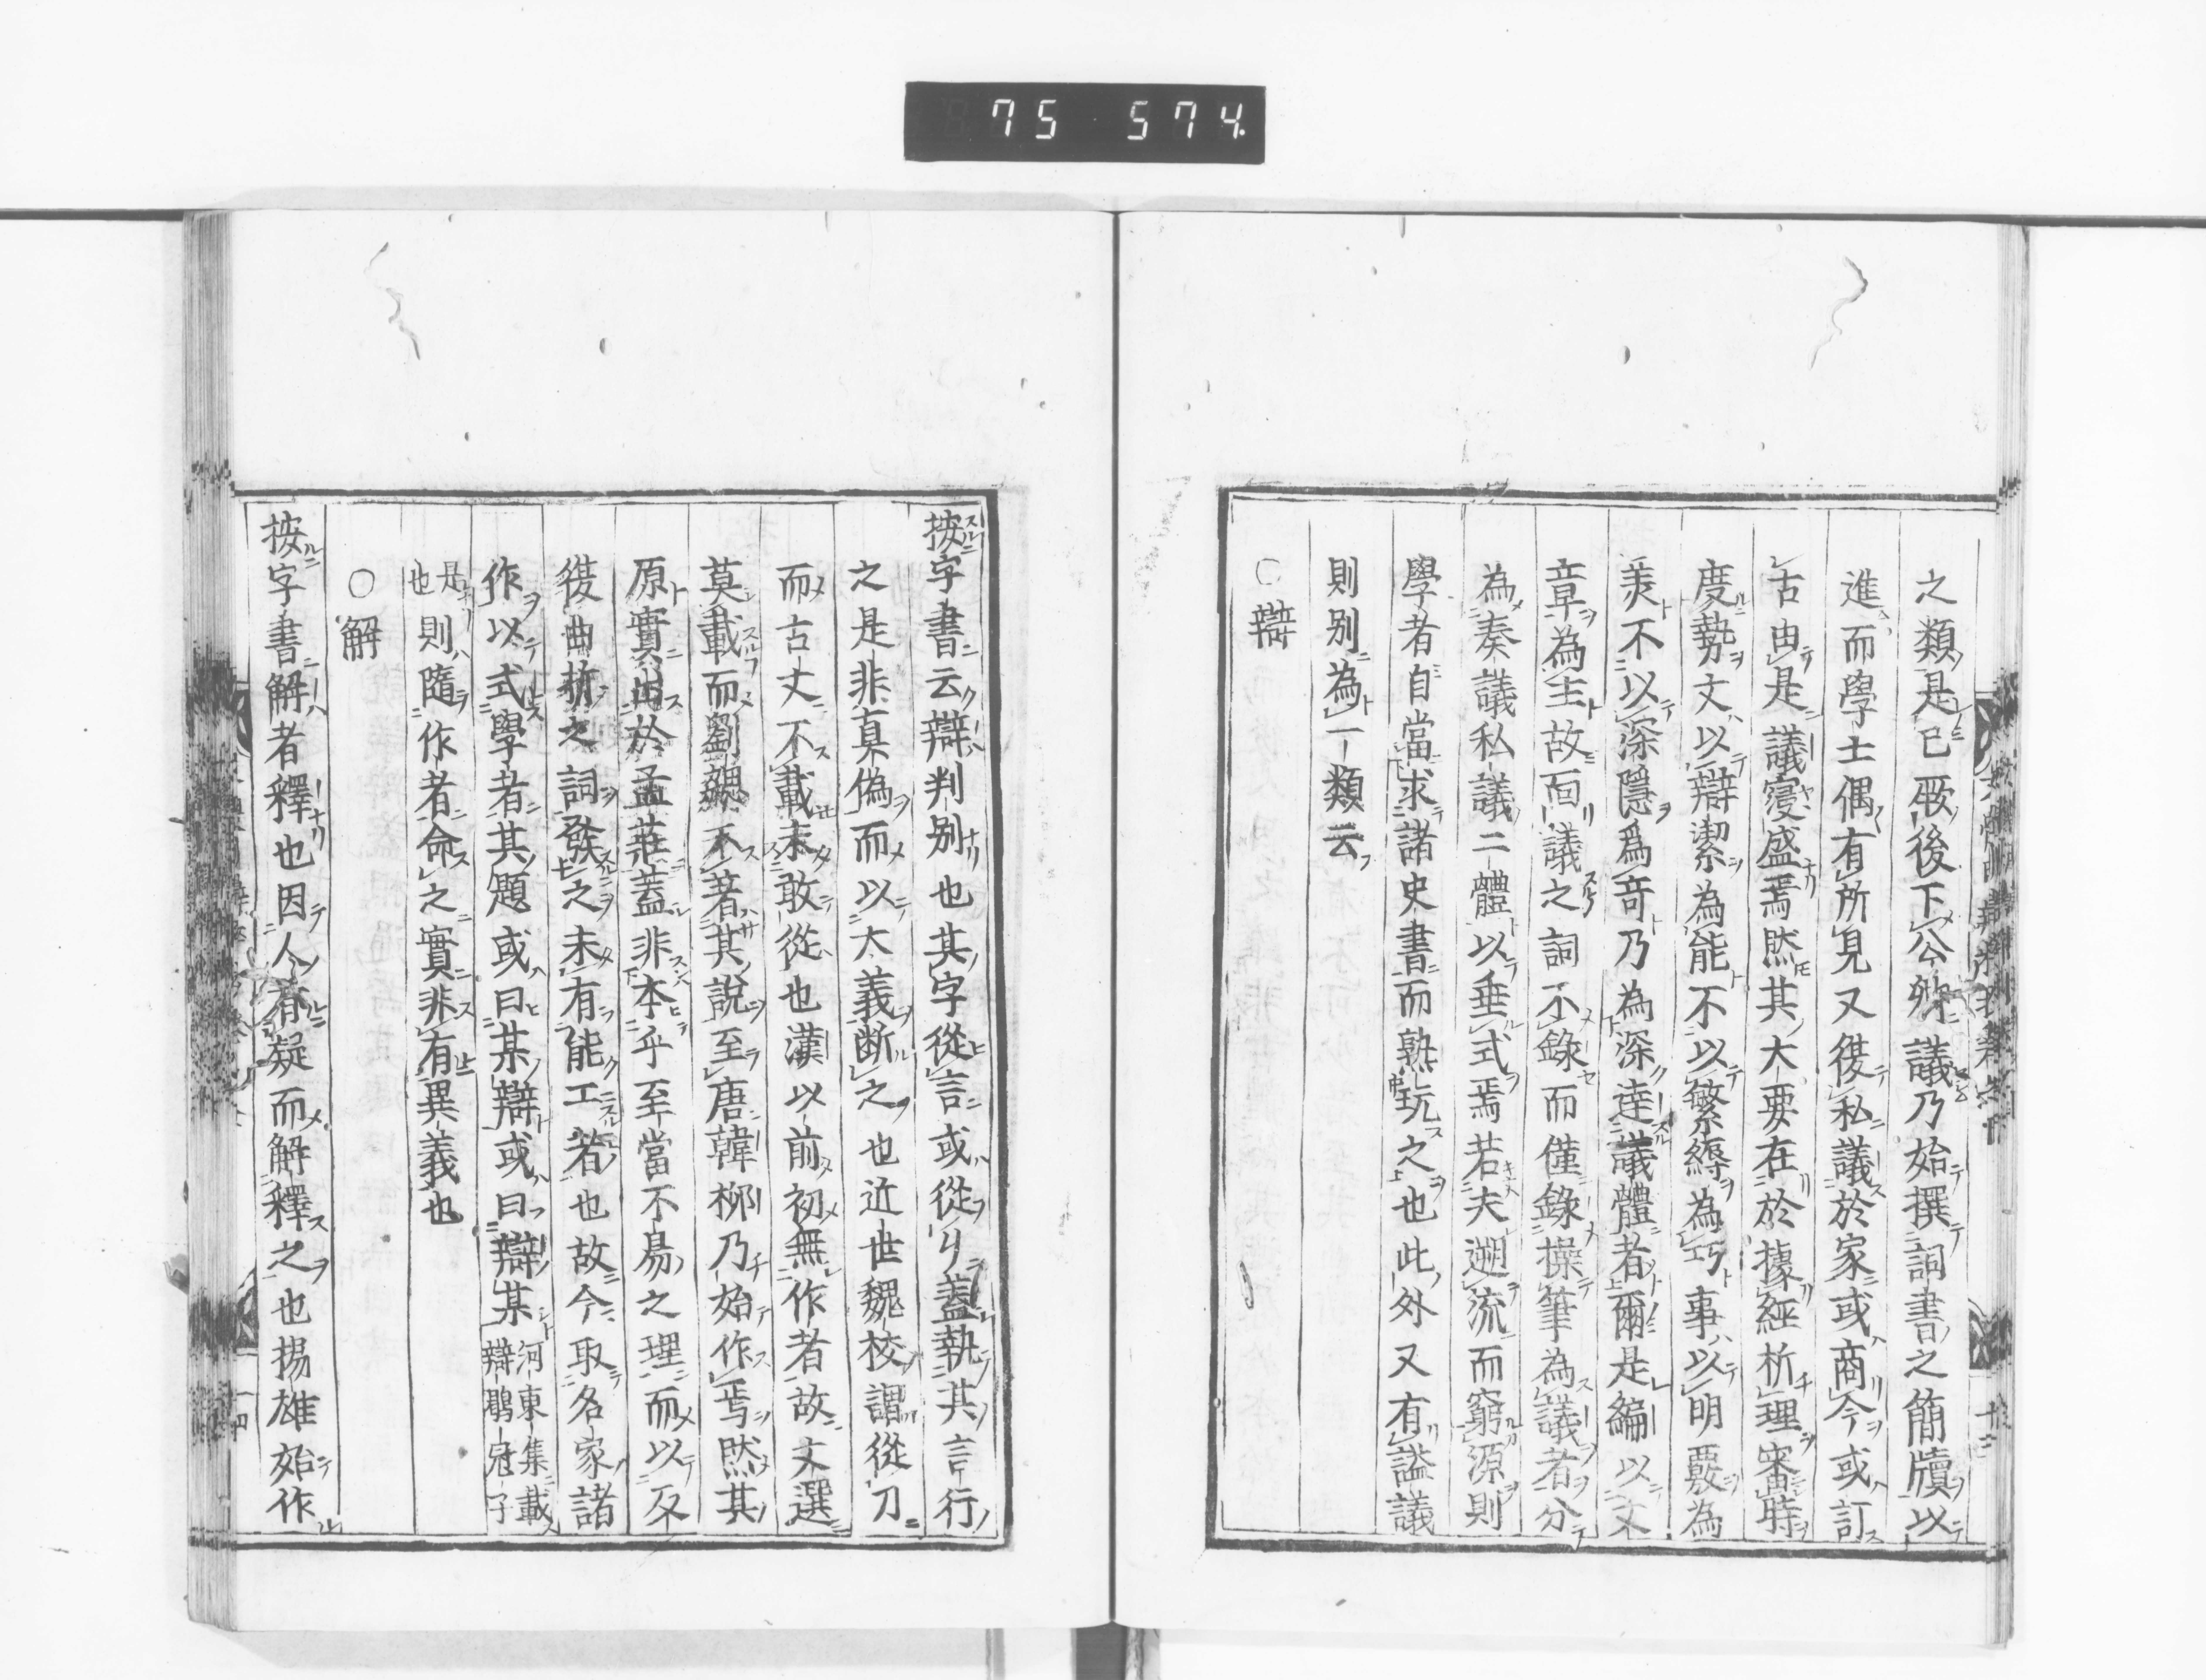 75 574.
之類是已厥後下公卿議乃始撰詞書之簡牘以
進而學士偶有所見又復私議於家或商今或訂
古由是議寖盛焉然其大要在於據經析理審時
度勢文以辯潔為能不以繁縟為巧事以明覈為
美不以深隱爲奇乃為深達議體者爾是編以文
章為主故面議之詞不錄而僅錄操筆為議者分
為奏議私議二體以垂式焉若夫遡流而窮源則
學者自當求諸史書而熟玩之也此外又有謚議
則别為一類云
○辯
按字書云辯判别也其字從言或從刂蓋執其言行
之是非真偽而以大義断之也近世魏校謂從刀
而古文不載未敢從也漢以前初無作者故文選
莫載而劉勰不著其說至唐韓柳乃始作焉然其
原實出於孟莊蓋非本乎至當不易之理而以反
復曲折之詞發之未有能工者也故今取名家諸
作以式學者其題或曰某辯或曰辯某河東集載辯鶡冠子
是也則隨作者命之實非有異義也
○解
按字書解者釋也因人有疑而解釋之也揚雄始作